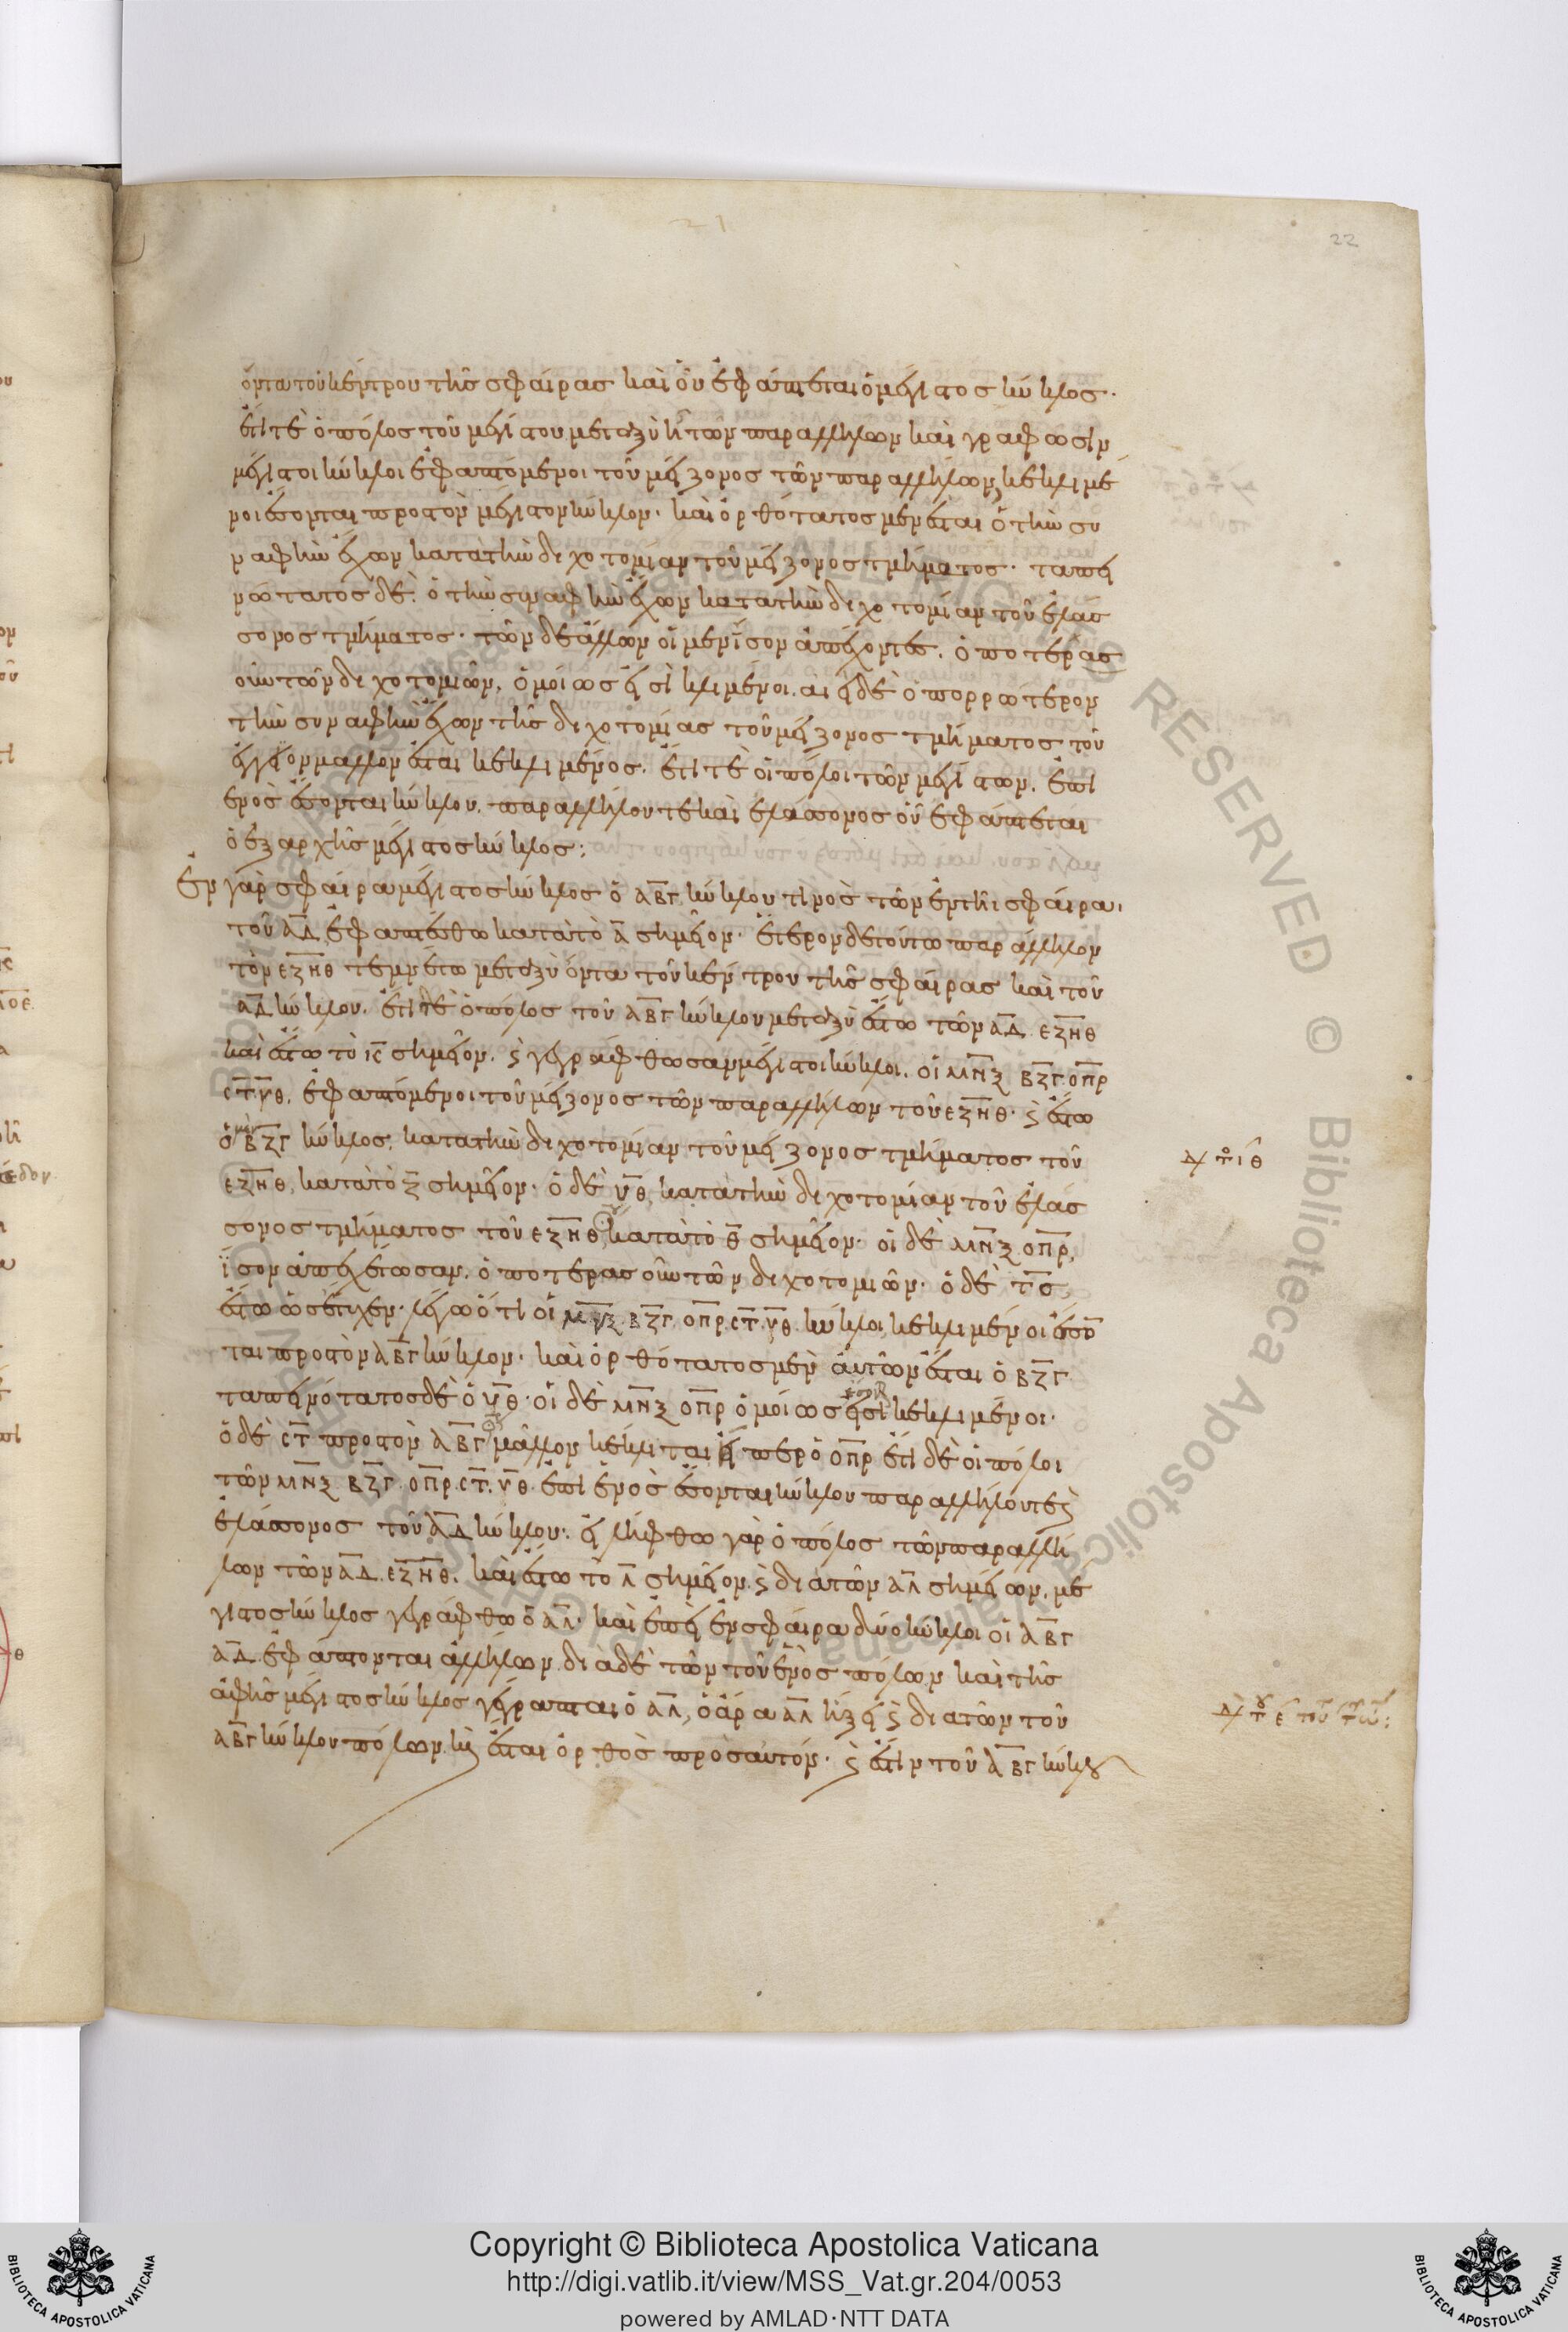 22
ὄντα τοῦ κέντρου τῆς σφαίρας καὶ οὗ ἐφάπτεται ὁ μέγιστος κύκλος·
ἔτι τὲ ὁ πόλος τοῦ μεγίστου μεταξὺ ἦ τῶν παραλλήλων καὶ γραφῶσιν
μέγιστοι κύκλοι ἐφαπτόμενοι τοῦ μείζονος τῶν παραλλήλων, κεκλιμέ
νοι ἔσονται πρὸς τὸν μέγιστον κύκλον· καὶ ὀρθότατος μὲν ἔσται ὁ τὴν συ
ναφὴν ἔχων κατὰ τὴν διχοτομίαν τοῦ μείζονος τμήματος· ταπει
νώτατος δὲ, ὁ τὴν συναφὴν ἔχων κατὰ τὴν διχοτομίαν τοῦ ἐλάσ
σονος τμήματος· τῶν δὲ ἄλλων οἱ μὲν ἴσον ἀπέχοντες, ὁποτερας
οὖν τῶν διχοτομιῶν, ὁμοίως εἰσὶ κλιμένοι. αἰεὶ δὲ ὁ πορρώτερον
τὴν συναφὴν ἔχων τῆς διχοτομίας τοῦ μείζονος τμήματος τοῦ
ἔγγιον μᾶλλον ἔσται κεκλιμένος· ἔτι τὲ οἱ πόλοι τῶν μεγίστων, ἐπὶ
ἑνὸς ἔσονται κύκλου, παραλλήλου τε καὶ ἐλάσσονος οὗ ἐφάπτεται
ὁ ἐξαρχῆς μέγιστος κύκλος:
Ἐν γὰρ σφαίρα μέγιστος κύκλος ὁ ΑΒΓ κύκλου τινὸς τῶν ἐν τῆι σφαίρα,
τοῦ ΑΔ ἐφαπτέσθω κατὰ τὸ Α σημεῖον· ἕτερον δὲ τούτω παράλληλον
τὸν ΕΖΗΘ τεμνέτω μεταξὺ ὄντα τοῦ κέντρου τῆς σφαίρας καὶ τοῦ
ΑΔ κύκλου. ἔτι δὲ ὁ πόλος τοῦ ΑΒΓ κύκλου μεταξὺ ἔστω τῶν ΑΔ. ΕΖΗΘ
καὶ ἔστω τὸ Κ σημεῖον, ϗ γεγράφθωσαν μέγιστοι κύκλοι, οἱ ΜΝΞ ΒΖΓ. ΟΠΡ
ϹΤ. ΥΘ. ἐφαπτόμενοι τοῦ μείζονος τῶν παραλλήλων τοῦ ΕΖΗΘ· ϗ ἔστω
ὁ μὲν ΒΖΓ κύκλος, κατὰ τὴν διχοτομίαν τοῦ μείζονος τμήματος τοῦ
ΕΖΗΘ, κατὰ τὸ Ζ σημεῖον· ὁ δὲ ΥΘ, κατὰ τὴν διχοτομίαν τοῦ ἐλάσ
σονος τμήματος τοῦ ΕΖΗΘ, κατὰ τὸ Θ σημεῖον· οἱ δὲ ΜΝΞ ΟΠΡ,
ἴσον ἀπεχέτωσαν, ὁποτερας οὖν τῶν διχοτομιῶν· ὁ δὲ ΤϹ,
ἔστω ὡς ἔτυχεν· λέγω ὅτι οἱ ΜΝΞ. ΒΖΓ. ΟΠΡ. ϹΤ. ΥΘ. κύκλοι, κεκλιμένοι ἔσον
ται πρὸς τὸν ΑΒΓ κύκλον· καὶ ὀρθότατος μὲν αὐτῶν ἔσται ὁ ΒΖΓ.
ταπεινότατος δὲ ὁ ΥΘ· οἱ δὲ ΜΝΞ ΟΠΡ ὁμοίως εἰσὶ κεκλιμένοι·
ὁ δὲ ϹΤ πρὸς τὸν ΑΒΓ μᾶλλον κέκλιται ἤπερ ὁ ΟΠΡ ἔτι δὲ οἱ πόλοι
τῶν ΜΝΞ ΒΖΓ. ΟΠΡ. ϹΤ. ΥΘ. ἐπὶ ἑνὸς ἔσονται κύκλου παραλλήλου τε ϗ
ἐλάσσονος τοῦ ΑΔ κύκλου:. εἰλήφθω γὰρ ὁ πόλος τῶν παραλλή
λων τῶν ΑΔ. ΕΖΗΘ. καὶ ἔστω τὸ Λ σημεῖον. ϗ διὰ τῶν ΑΛ σημείων, μέ
γιστος κύκλος γεγράφθω ὁ ΑΛ. καὶ ἐπεὶ ἐν σφαίρα δύο κύκλοι οἱ ΑΒΓ
ΑΔ. ἐφάπτονται ἀλλήλων. διὰ δὲ τῶν τοῦ ἑνὸς πόλων καὶ τῆς
ἁφῆς μέγιστος κύκλος γέγραπται ὁ ΑΛ, ὁ ἄρα ΑΛ ἥξει ϗ διὰ τῶν τοῦ
ΑΒΓ κύκλου πόλων, ϗ ἔσται ὀρθὸς πρὸς αὐτόν. ϗ ἔστιν τοῦ ΑΒΓ κύκλου
Copyright © Biblioteca Apostolica Vaticana
http://digi.vatlib.it/view/MSS_Vat.gr.204/0053
powered by AMLAD·NTT DATA
BIBLIOTECA APOSTOLICA VATICANA
BIBLIOTECA APOSTOLICA VATICANA